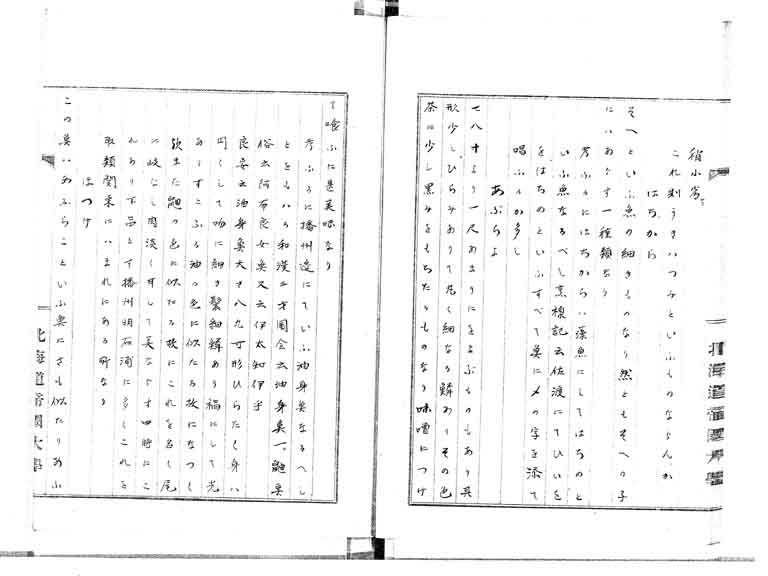 稍小劣
これ則うきはつみといふものならんか
はちから
そへといふ魚の細きものなり然ともそへの子
にハあらす一種類なり
考ふるにはちからハ藻魚にしてはちのと
いふ魚なるべし烹様記云佐渡にてひいを
をはちのといふすべて魚にメの字を添て
唱ふる多し
あぶらこ
七八寸より一尺あまりにをよぶものもあり其
形少しひらみありて丸く細なる鱗ありその色
茶に少し黒みをもちたるものなり味噌につけ
て喰ふに是美味なり
考ふるに播州邊にていふ油身魚なるへし
ともハる和漢三才圖会云油身魚一鼬魚
俗云阿布良女魚又云伊太知伊乎
良安云油身魚大サ八九寸形ひらたく身ハ
円くして吻に細き鬐細鱗あり褐にして光
ありすこふる油の色に似たる故になつく
歟また鼬の色に似たる故にこれを名く尾
に岐なし肉淡く甘して美ならす四時にこ
れあり下品とす播州明石浦に多しこれを
取類関東にハまれにある所なり
はつけ
この魚ハあふらこといふ魚にさも似たりあふ
北海道帝國大學
北海道帝國大學